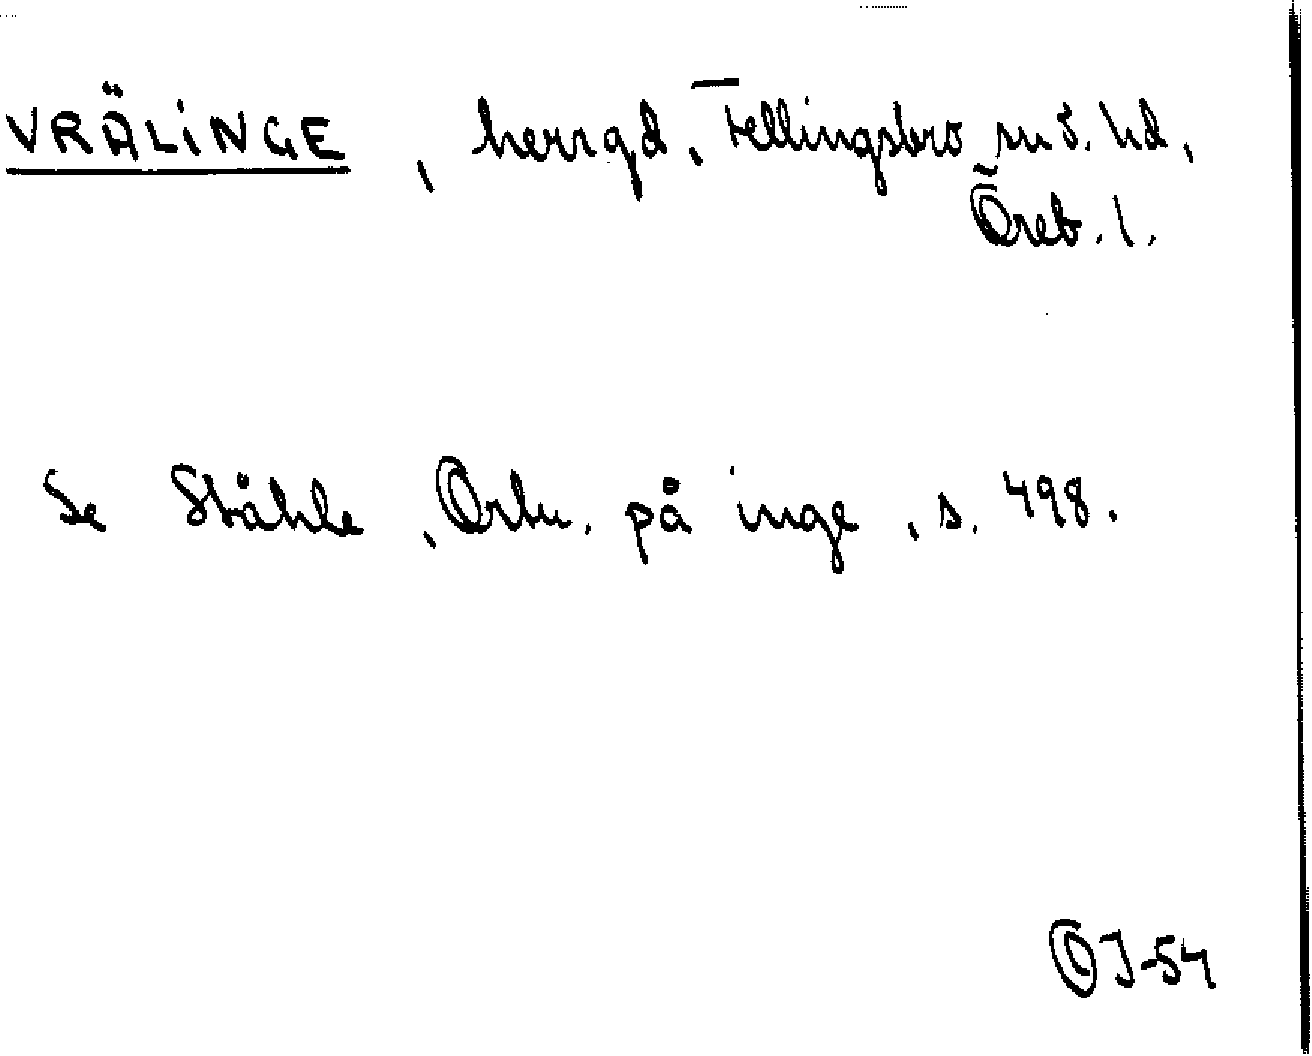 VRÄLINGE, herrgd, Fellingsbro sn o. hd,
Öreb. l.
Se Ståhle, Ortn. på inge, s. 498.
OJ-54